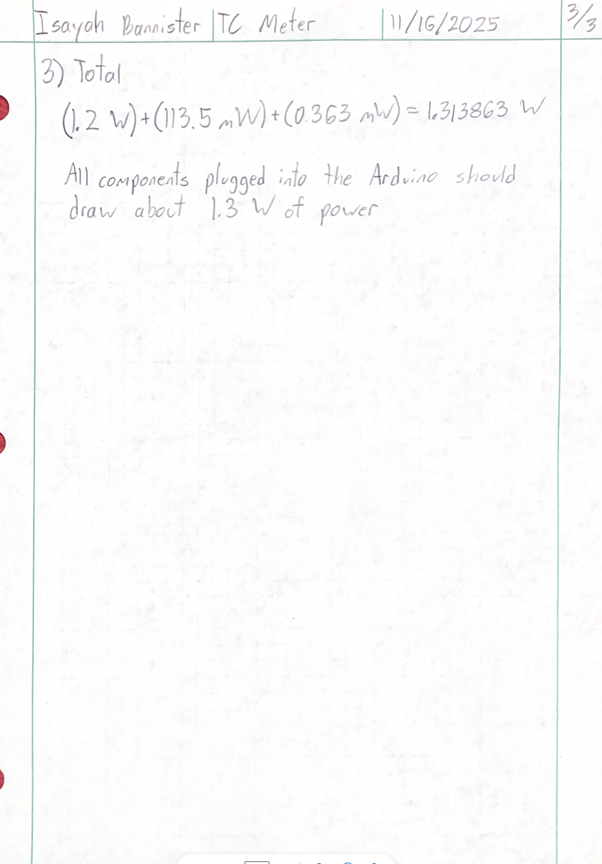 Isayah Bannister | TC Meter | 11/16/2025 3/3
3) Total
(1.2 W)+(113.5 mW)+(0.363 mW) = 1.313863 W
All components plugged into the Arduino should
draw about 1.3 W of power